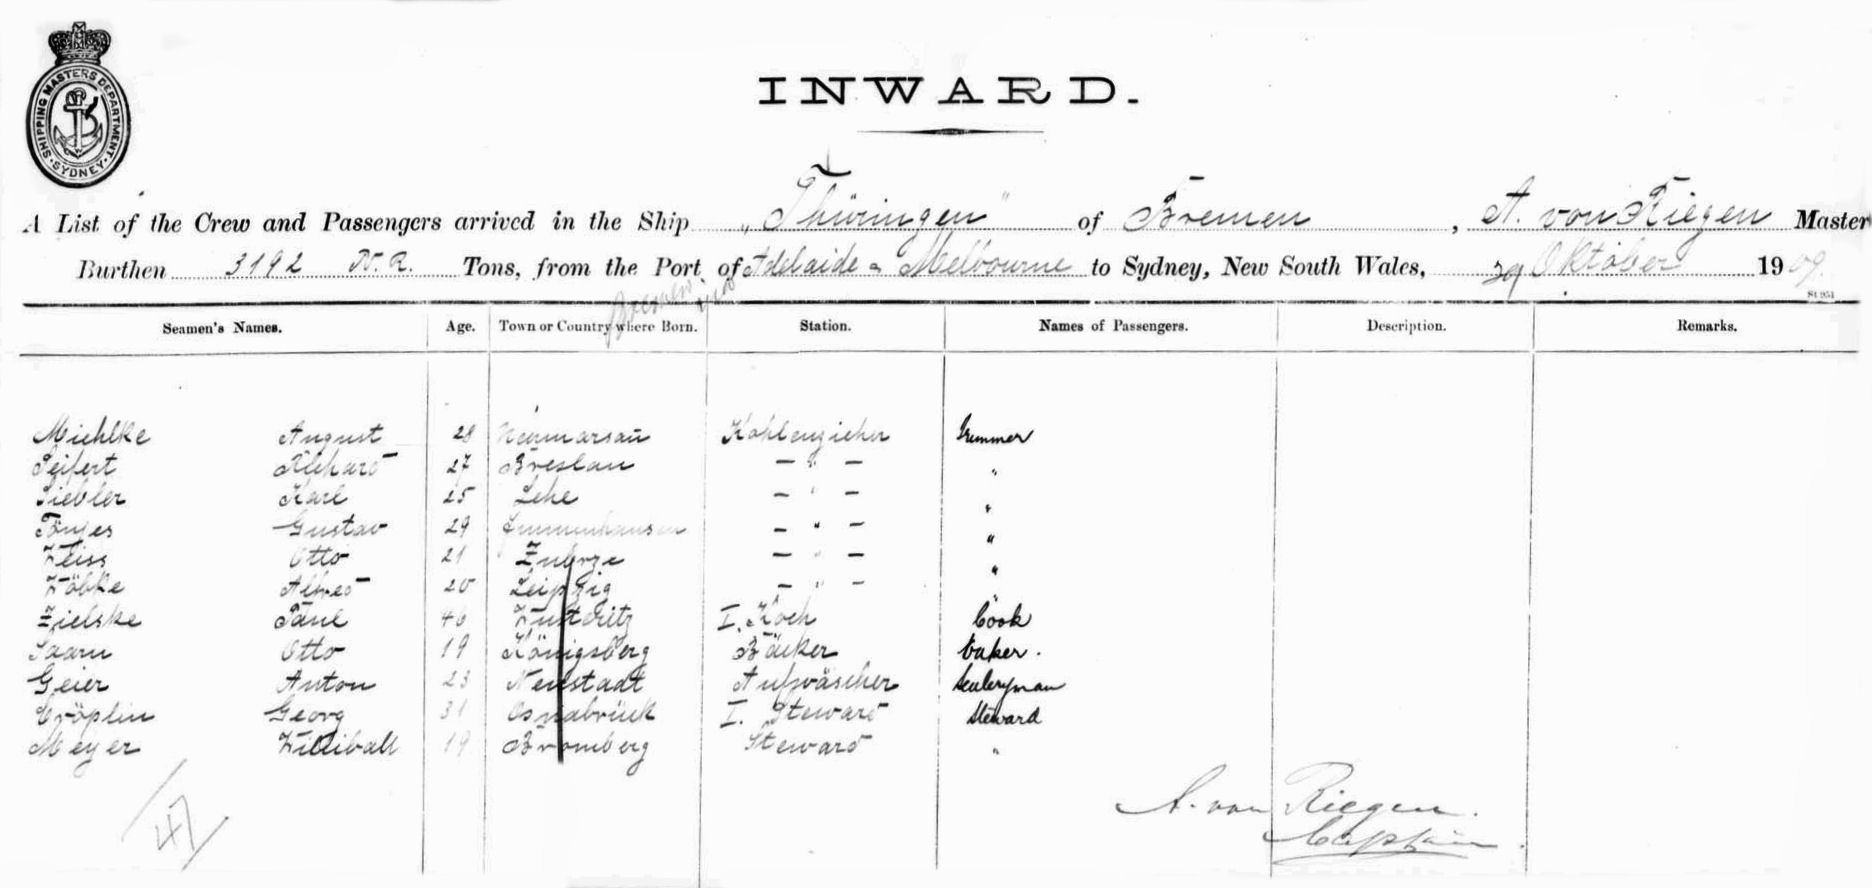 SHIPPING MASTERS DEPARTMENT · SYDNEY ·
INWARD.
A List of the Crew and Passengers arrived in the Ship „Thüringen" of Bremen, A. von Riegen Master
Burthen 3192 N.R. Tons, from the Port of Adelaide & Melbourne to Sydney, New South Wales, 29 Oktober 1909
Bremen via
St 951
Seamen's Names. Age. Town or Country where Born. Station. Names of Passengers. Description. Remarks.
Miehlke August 28 Kohlenzieher trimmer
Seifert Richard 27 Breslau — " — "
Siebler Karl 25 Lehe — " — "
Tönjes Gustav 29 — " — "
Weiss Otto 21 Zabrze — " — "
Wöbke Alfred 20 Leipzig — " — "
Zielske Paul 46 I. Koch Cook
Saaru Otto 19 Königsberg Bäcker baker.
Geier Anton 23 Neustadt Aufwäscher
Cröplin Georg 31 Osnabrück I. Steward Steward
Meyer Willibald 19 Bromberg Steward "
47
A. von Riegen.
Captain.